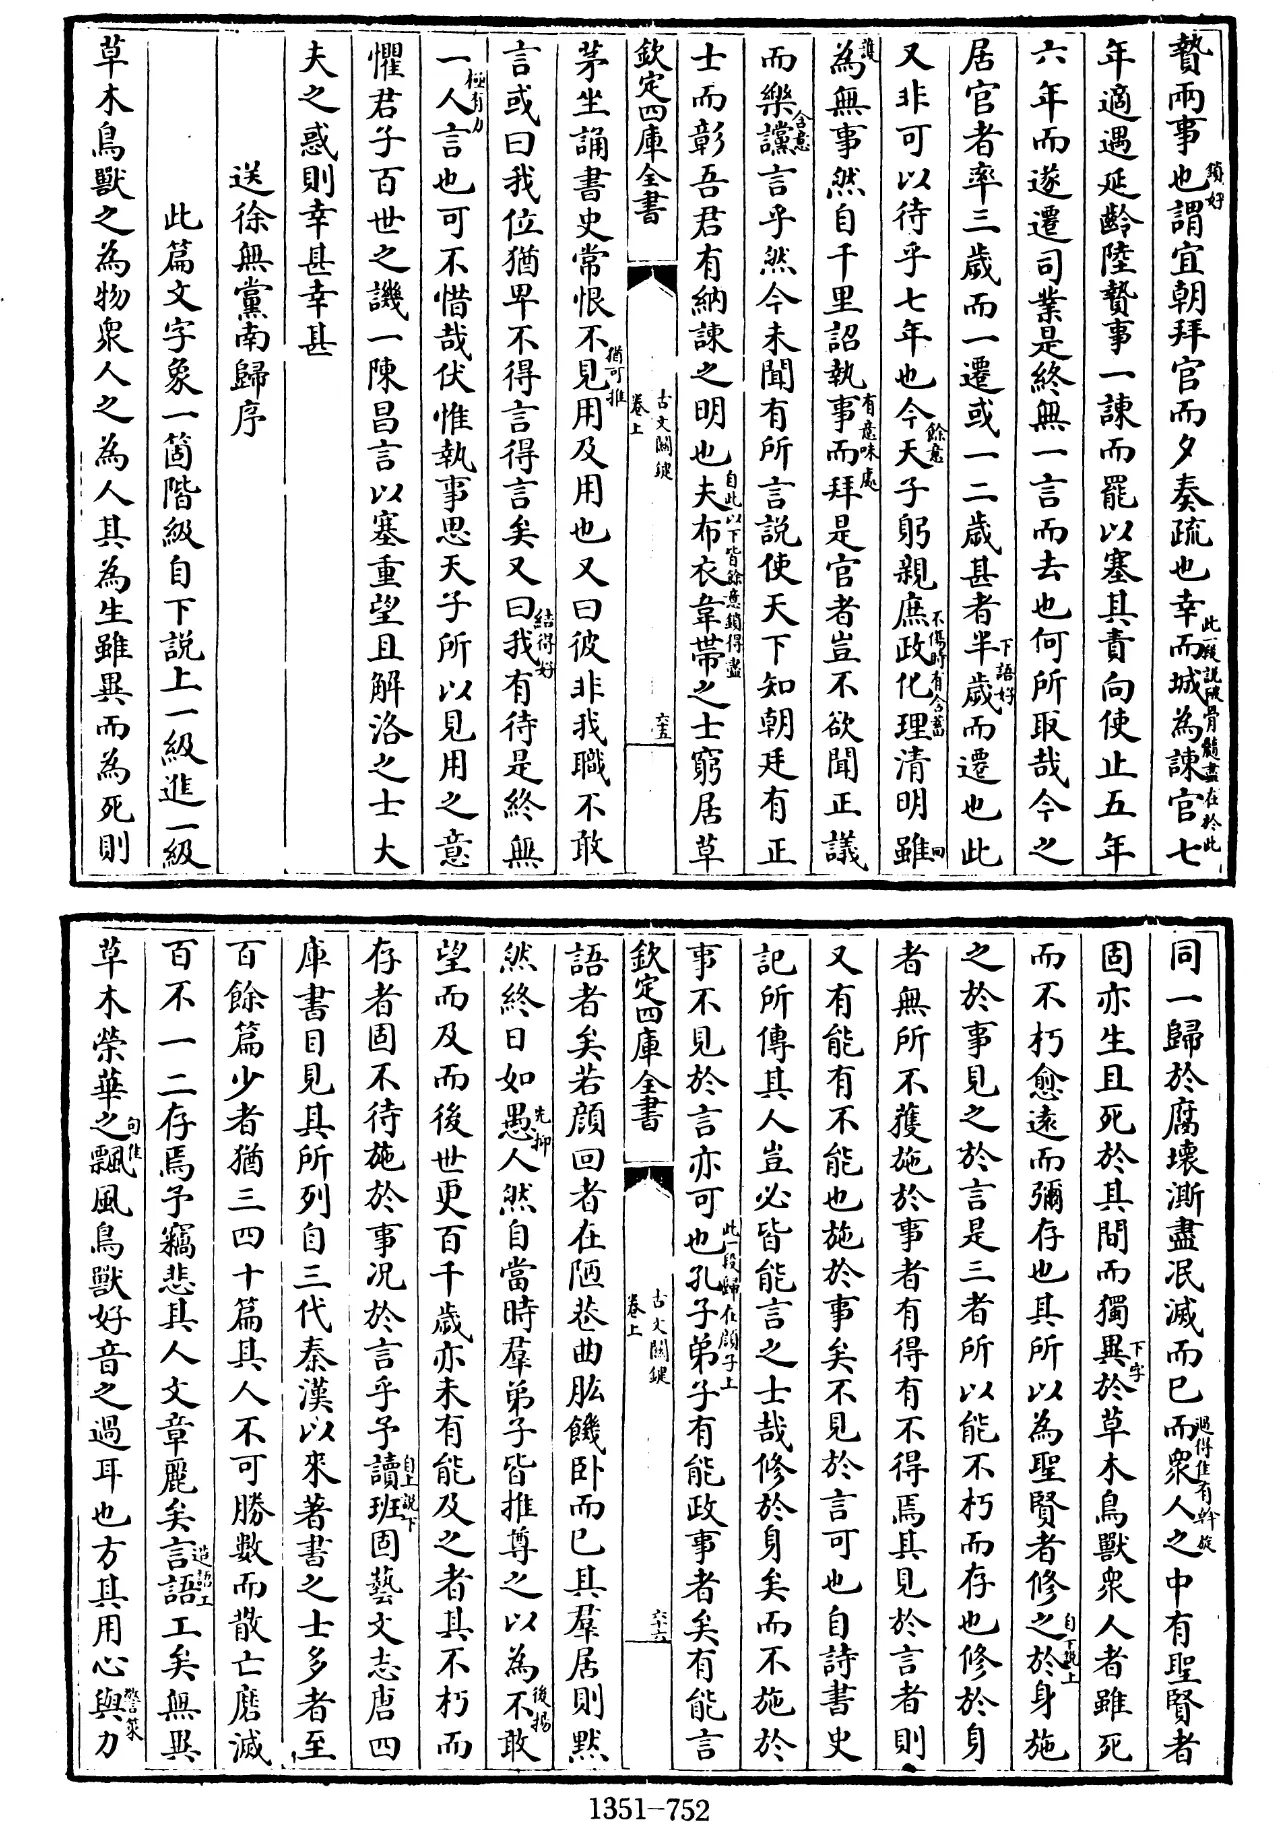 贄兩事也謂宜朝拜官而夕奏疏也幸而城為諫官七
鎖好
此一段說破骨髓盡在於此
年適遇延齡陸贄事一諫而罷以塞其責向使止五年
六年而遂遷司業是終無一言而去也何所取哉今之
居官者率三歲而一遷或一二歲甚者半歲而遷也此
下語好
又非可以待乎七年也今天子躬親庶政化理清明雖
餘意
不傷時有含蓄
回
為無事然自千里詔執事而拜是官者豈不欲聞正議
護
有意味處
而樂讜言乎然今未聞有所言說使天下知朝廷有正
含意
士而彰吾君有納諫之明也夫布衣韋帶之士窮居草
自此以下皆餘意鎖得盡
欽定四庫全書
古文關鍵
卷上
六五
茅坐誦書史常恨不見用及用也又曰彼非我職不敢
猶可推
言或曰我位猶卑不得言得言矣又曰我有待是終無
結得好
一人言也可不惜哉伏惟執事思天子所以見用之意
極有力
懼君子百世之譏一陳昌言以塞重望且解洛之士大
夫之惑則幸甚幸甚
送徐無黨南歸序
此篇文字象一箇階級自下説上一級進一級
草木鳥獸之為物衆人之為人其為生雖異而為死則
同一歸於腐壞澌盡泯滅而已而衆人之中有聖賢者
過得佳有斡旋
固亦生且死於其間而獨異於草木鳥獸衆人者雖死
下字
而不朽愈遠而彌存也其所以為聖賢者修之於身施
自下說上
之於事見之於言是三者所以能不朽而存也修於身
者無所不獲施於事者有得有不得焉其見於言者則
又有能有不能也施於事矣不見於言可也自詩書史
記所傳其人豈必皆能言之士哉修於身矣而不施於
事不見於言亦可也孔子弟子有能政事者矣有能言
此一段歸在顔子上
欽定四庫全書
古文關鍵
卷上
六十六
語者矣若顔回者在陋巷曲肱饑卧而已其羣居則默
然終日如愚人然自當時羣弟子皆推尊之以為不敢
先抑
後揚
望而及而後世更百千歲亦未有能及之者其不朽而
存者固不待施於事况於言乎予讀班固藝文志唐四
自上說下
庫書目見其所列自三代秦漢以來著書之士多者至
百餘篇少者猶三四十篇其人不可勝數而散亡磨滅
百不一二存焉予竊悲其人文章麗矣言語工矣無異
造語工
草木榮華之飄風鳥獸好音之過耳也方其用心與力
句佳
警策
1351-752